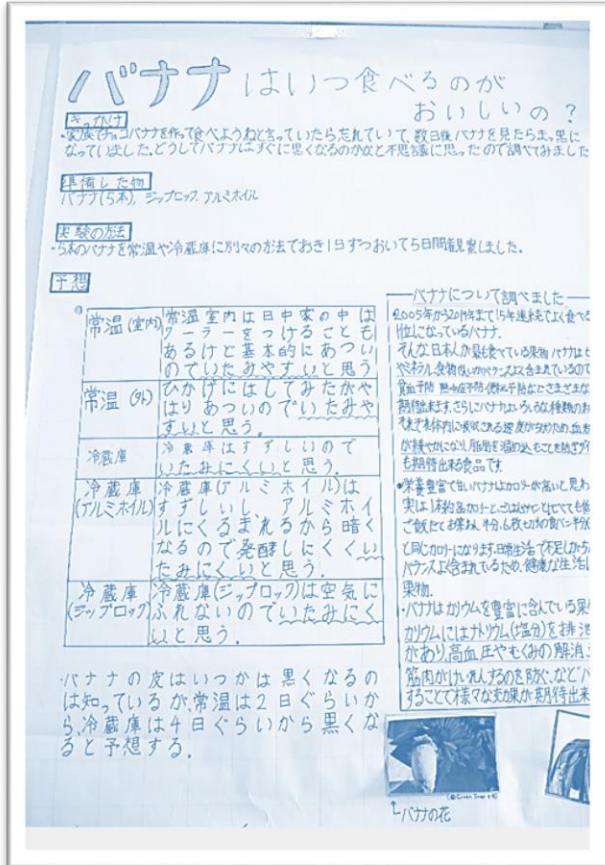 バナナはいつ食べるのが
おいしいの?
きっかけ
・家族でチョコバナナを作って食べようねと言っていたら忘れていて、数日後バナナを見たらまっ黒に
なっていました。どうしてバナナはすぐに黒くなるのかなと不思議に思ったので調べてみました
準備した物
バナナ(5本), ジップロック, アルミホイル
実験の方法
・5本のバナナを常温や冷蔵庫に別々の方法でおき1日ずつおいて5日間観察しました。
予想
常温(室内)
常温室内は日中家の中は
クーラーをつけることも
あるけど基本的にあつい
のでいたみやすいと思う
常温(外)
ひかげにはしてみたがや
はりあついのでいたみや
すいと思う。
冷蔵庫
冷蔵庫はすずしいので
いたみにくいと思う。
冷蔵庫
(アルミホイル)
冷蔵庫(アルミホイル)は
すずしいし、アルミホイ
ルにくるまれるから暗く
なるので発酵しにくくい
たみにくいと思う。
冷蔵庫
(ジップロック)
冷蔵庫(ジップロック)は空気に
ふれないのでいたみにく
いと思う。
・バナナの皮はいつかは黒くなるの
は知っているが、常温は2日ぐらいか
ら、冷蔵庫は4日ぐらいから黒くな
ると予想する。
バナナについて調べました
2005年から2019年まで15年連続でよく食べる
1位になっているバナナ。
そんな日本人が最も食べている果物バナナは
やミネラル、食物せんいがバランスよく含まれているので
貧血予防 熱中症予防 便秘予防などさまざまな
期待出来ます。さらにバナナはいろいろな種類のお
それぞれ体内に吸収される速度が分かれため、血
が緩やかになり、脂肪を溜め込むことを防ぎダイ
も期待出来る食品です。
・栄養豊富で甘いバナナはカロリーが高いと思わ
実は1本約
と同じカロリーになります。日常生活で不足しがち
バランスよく含まれているため、健康な生活に
果物。
・バナナはカリウムを豊富に含んでいる果
カリウムにはナトリウム(塩分)を排泄
があり、高血圧やむくみの解消
筋肉がけいれんするのを防ぐ、など
することで様々な効果が期待出来
↑バナナの花